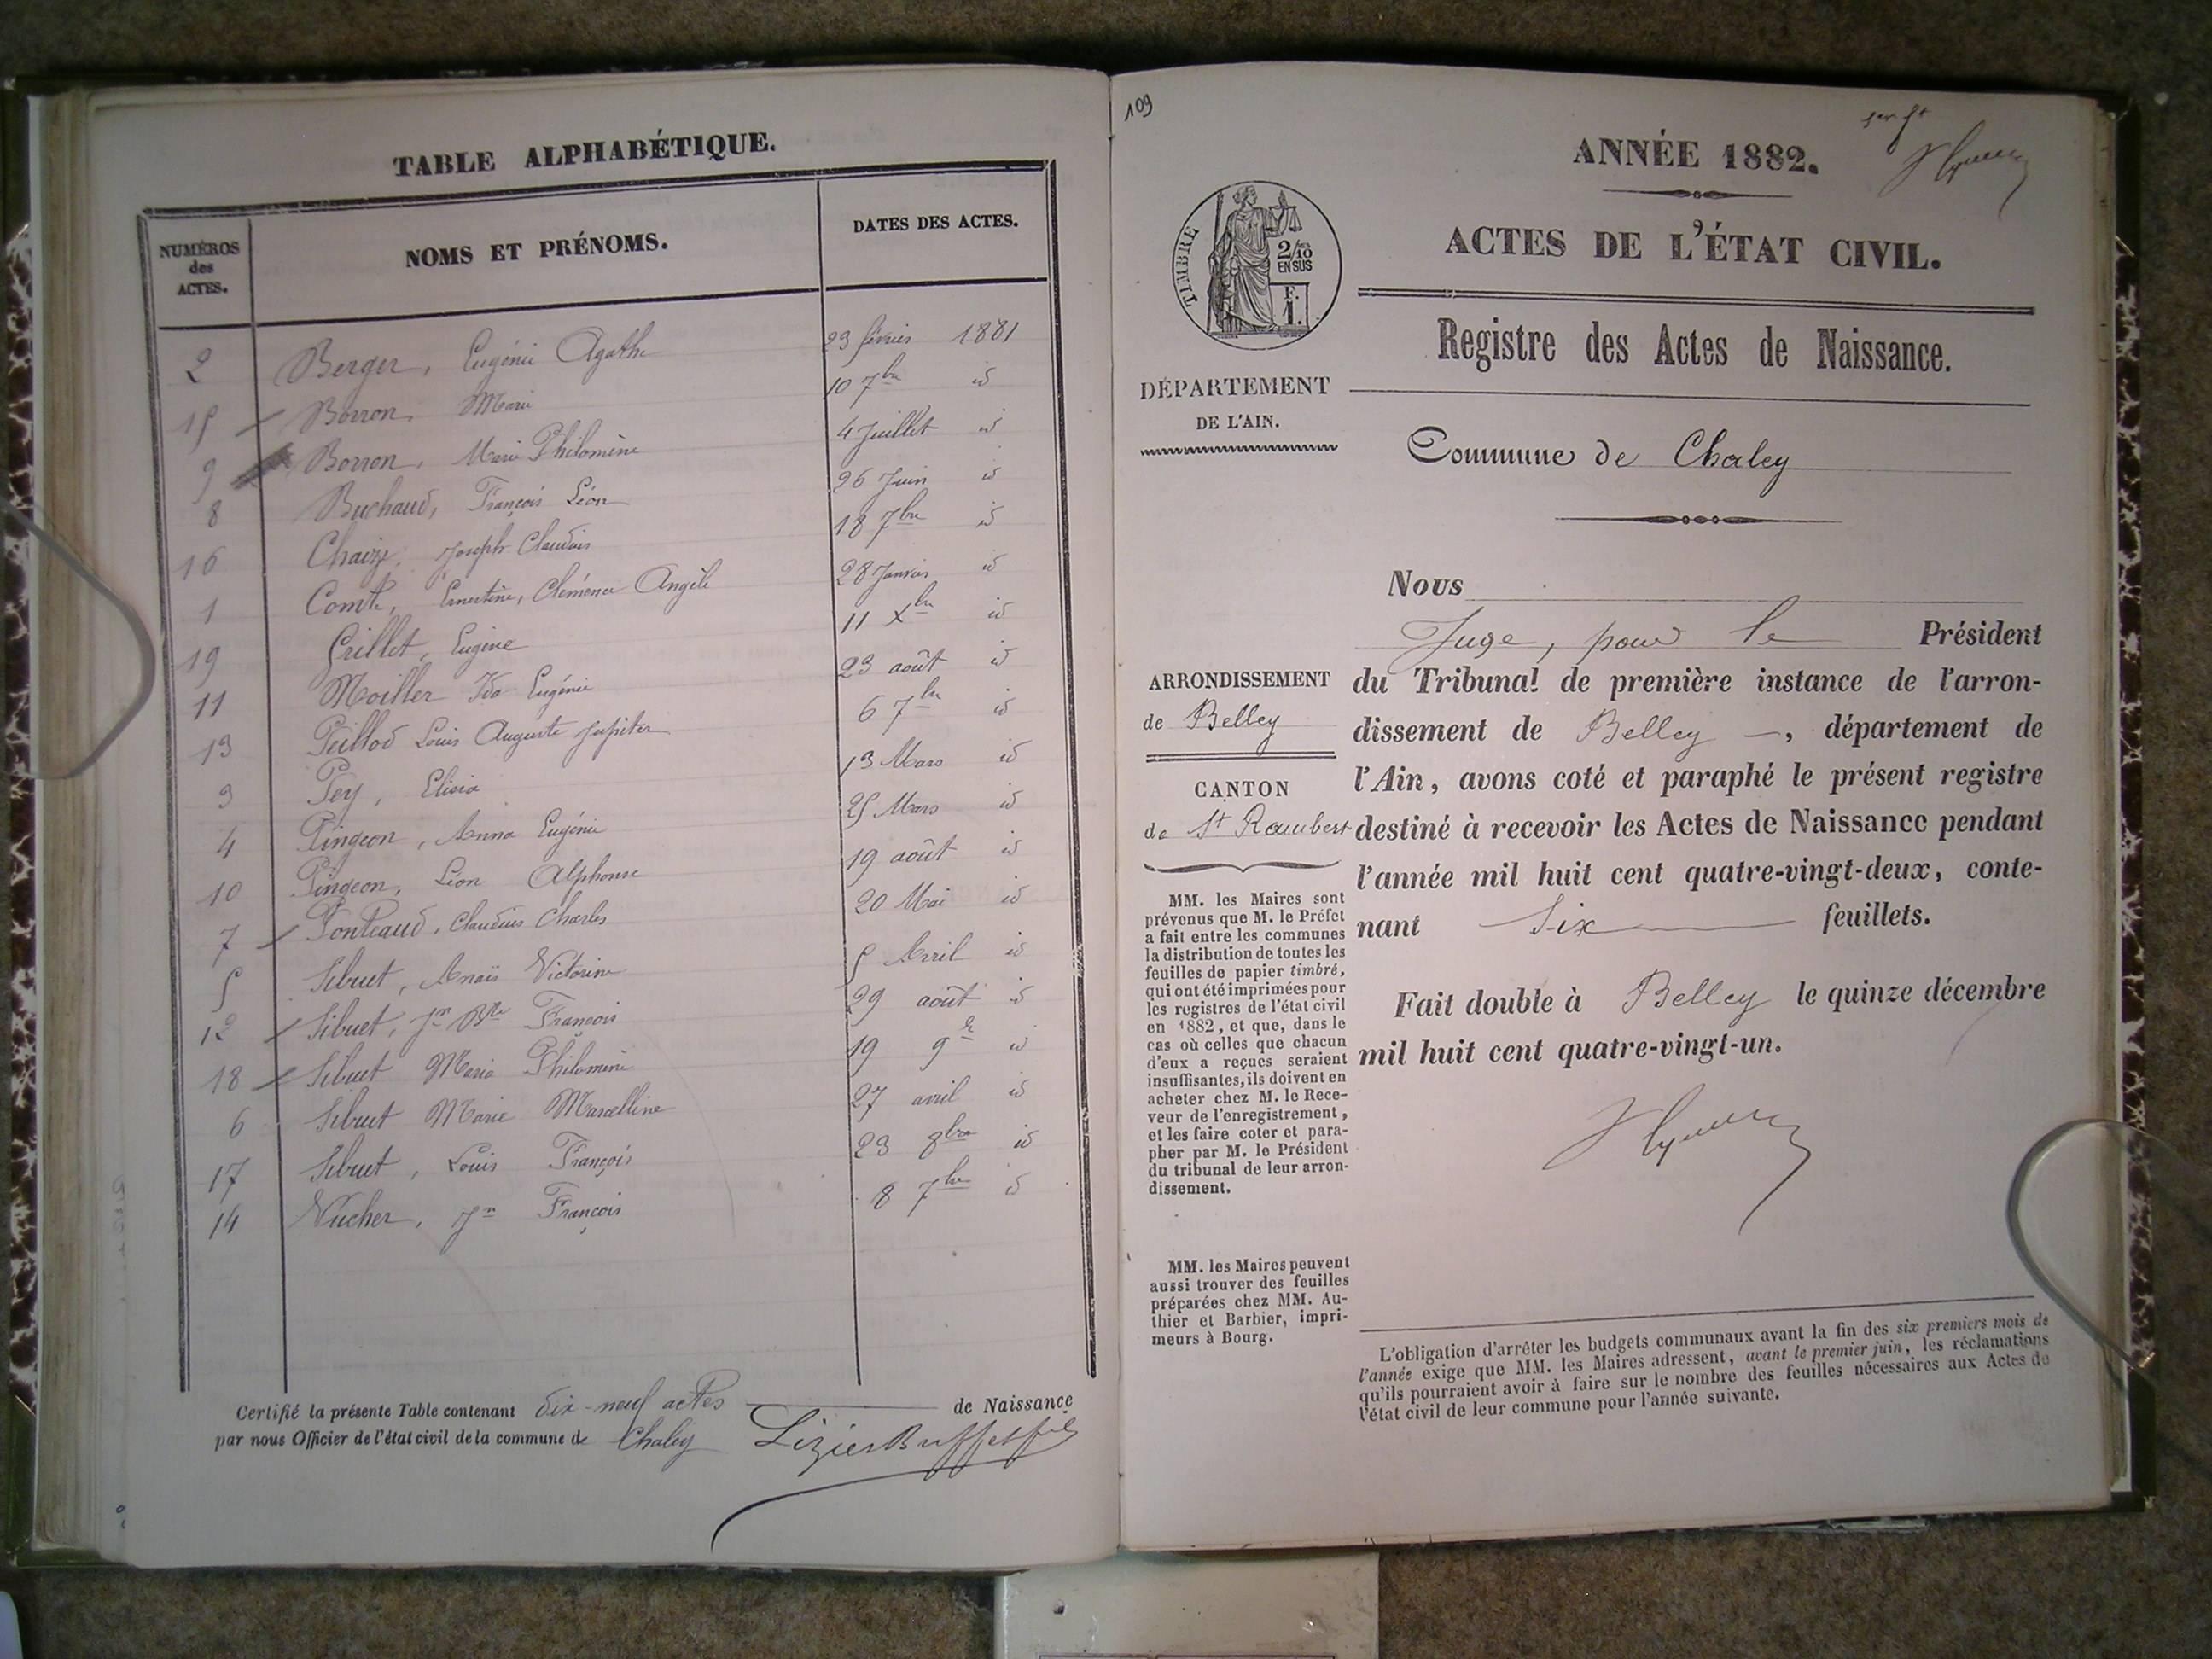 TABLE ALPHABÉTIQUE.
NUMÉROS des ACTES. NOMS ET PRÉNOMS. DATES DES ACTES.
2 Berger, Eugénie Agathe 23 février 1881
15 Borron, Marie 10 7bre id
9 Borron, Marie Philomène 4 Juillet id
8 Buchaud, François Léon 26 Juin id
16 Chaize, Joseph Claudius 18 7bre id
1 Comte, Ernestine, Clémence Angèle 28 Janvier id
19 Grillet, Eugène 11 Xbre id
11 Moiller Ida Eugénie 23 août id
13 Peillod Louis Auguste Jupiter 6 7bre id
3 Pey, Elisia 13 Mars id
4 Pingeon, Anna Eugénie 25 Mars id
10 Pingeon, Léon Alphonse 19 août id
7 Claudius Charles 20 Mai id
5 Sibuet, Anaïs Victorine 5 Avril id
12 Sibuet, Jn Bte François 29 août id
18 Sibuet Marie Philomène 19 9bre id
6 Sibuet Marie Marcelline 27 avril id
17 Sibuet, Louis François 23 8bre id
14 Vucher, Jn François 8 7bre id
Certifié la présente Table contenant dix-neuf actes de Naissance
par nous Officier de l'état civil de la commune de Chaley Lizier Buffet fils
109
1er ft
ANNÉE 1882.
ACTES DE L'ÉTAT CIVIL.
TIMBRE
2/10 EN SUS
F. 1.
Registre des Actes de Naissance.
DÉPARTEMENT
DE L'AIN.
Commune de Chaley
ARRONDISSEMENT
de Belley
CANTON
de St Rambert
MM. les Maires sont
prévenus que M. le Préfet
a fait entre les communes
la distribution de toutes les
feuilles de papier timbré,
qui ont été imprimées pour
les registres de l'état civil
en 1882, et que, dans le
cas où celles que chacun
d'eux a reçues seraient
insuffisantes, ils doivent en
acheter chez M. le Rece-
veur de l'enregistrement,
et les faire coter et para-
pher par M. le Président
du tribunal de leur arron-
dissement.
MM. les Maires peuvent
aussi trouver des feuilles
préparées chez MM. Au-
thier et Barbier, impri-
meurs à Bourg.
Nous
Juge, pour le Président
du Tribunal de première instance de l'arron-
dissement de Belley —, département de
l'Ain, avons coté et paraphé le présent registre
destiné à recevoir les Actes de Naissance pendant
l'année mil huit cent quatre-vingt-deux, conte-
nant Six feuillets.
Fait double à Belley le quinze décembre
mil huit cent quatre-vingt-un.
L'obligation d'arrêter les budgets communaux avant la fin des six premiers mois de
l'année exige que MM. les Maires adressent, avant le premier juin, les réclamations
qu'ils pourraient avoir à faire sur le nombre des feuilles nécessaires aux Actes de
l'état civil de leur commune pour l'année suivante.